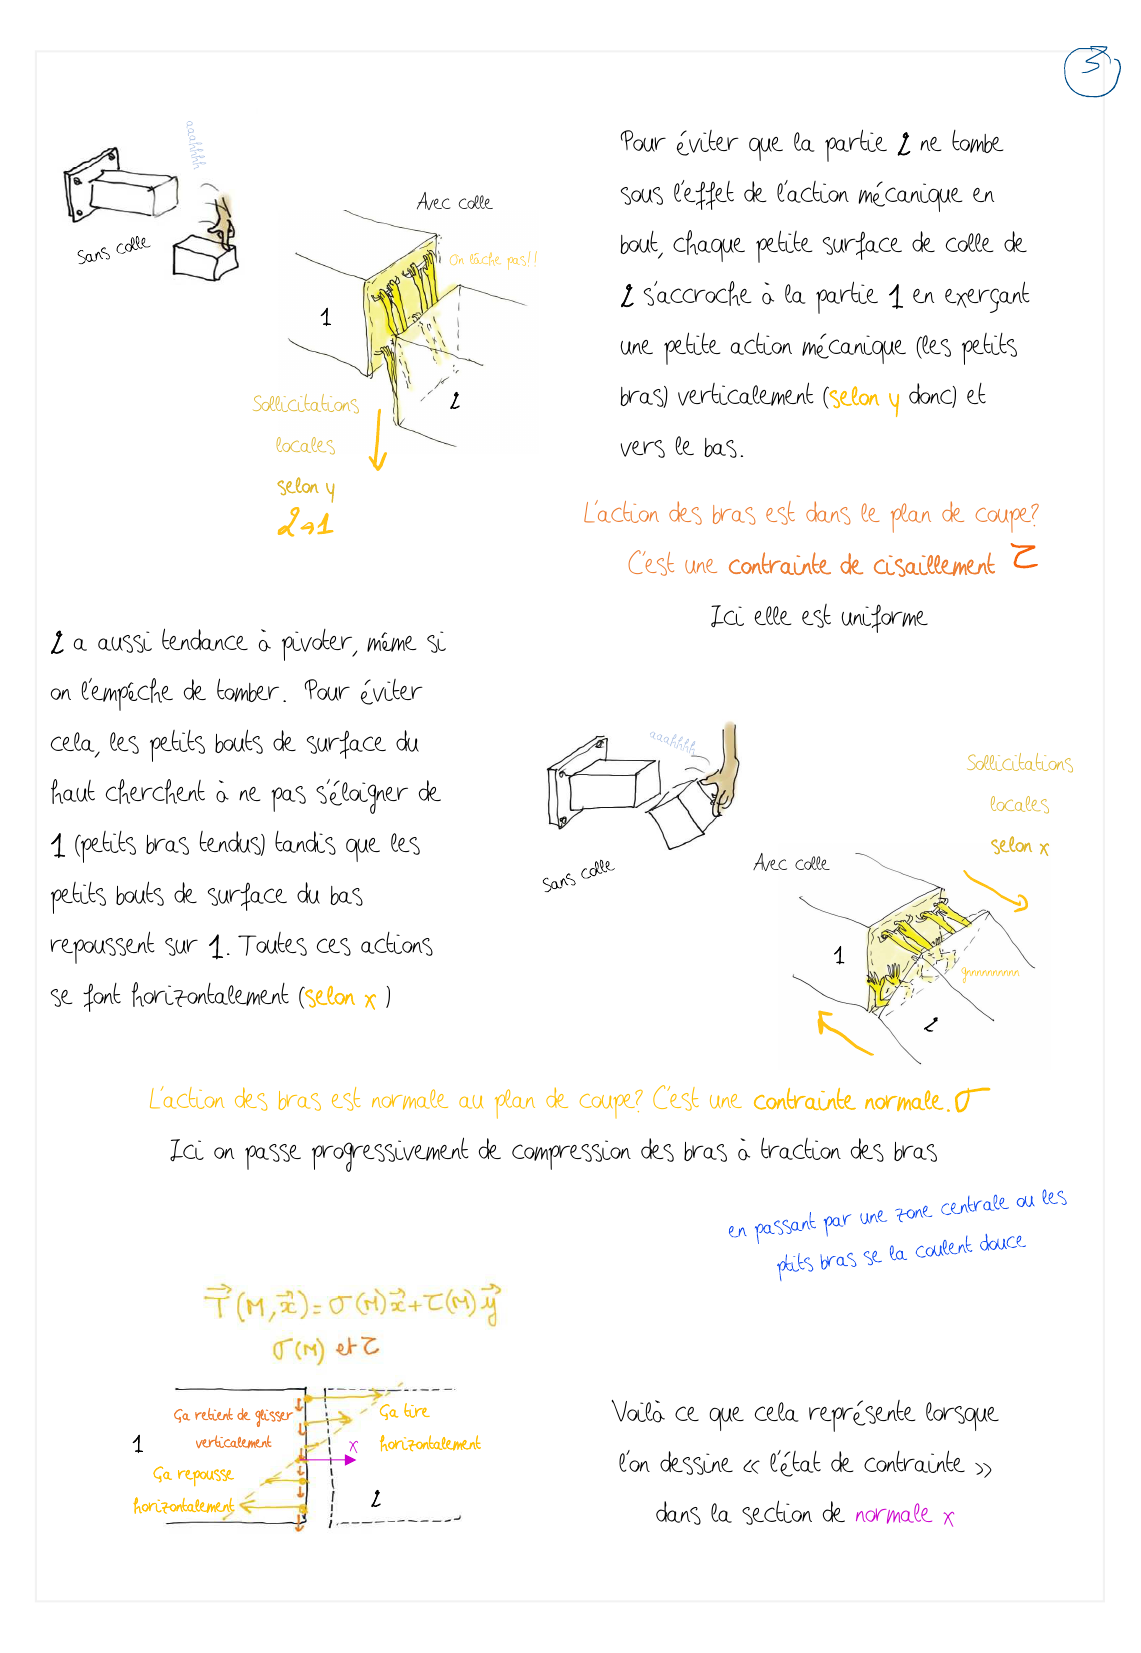 3
aaahhhh
Sans colle
Avec colle
On lâche pas!!
1
2
Sollicitations
locales
selon y
2→1
Pour éviter que la partie 2 ne tombe
sous l'effet de l'action mécanique en
bout, chaque petite surface de colle de
2 s'accroche à la partie 1 en exerçant
une petite action mécanique (les petits
bras) verticalement (selon y donc) et
vers le bas.
L'action des bras est dans le plan de coupe?
C'est une contrainte de cisaillement τ
Ici elle est uniforme
2 a aussi tendance à pivoter, même si
on l'empêche de tomber. Pour éviter
cela, les petits bouts de surface du
haut cherchent à ne pas s'éloigner de
1 (petits bras tendus) tandis que les
petits bouts de surface du bas
repoussent sur 1. Toutes ces actions
se font horizontalement (selon x )
aaahhhh
Sans colle
Sollicitations
locales
selon x
Avec colle
1
gnnnnnnnnn
2
L'action des bras est normale au plan de coupe? C'est une contrainte normale. σ
Ici on passe progressivement de compression des bras à traction des bras
en passant par une zone centrale ou les
ptits bras se la coulent douce
T(M,x) = σ(M)x+τ(M)y
σ(M) et τ
Ça retient de glisser
verticalement
Ça tire
horizontalement
1
x
Ça repousse
horizontalement
2
Voilà ce que cela représente lorsque
l'on dessine « l'état de contrainte »
dans la section de normale x